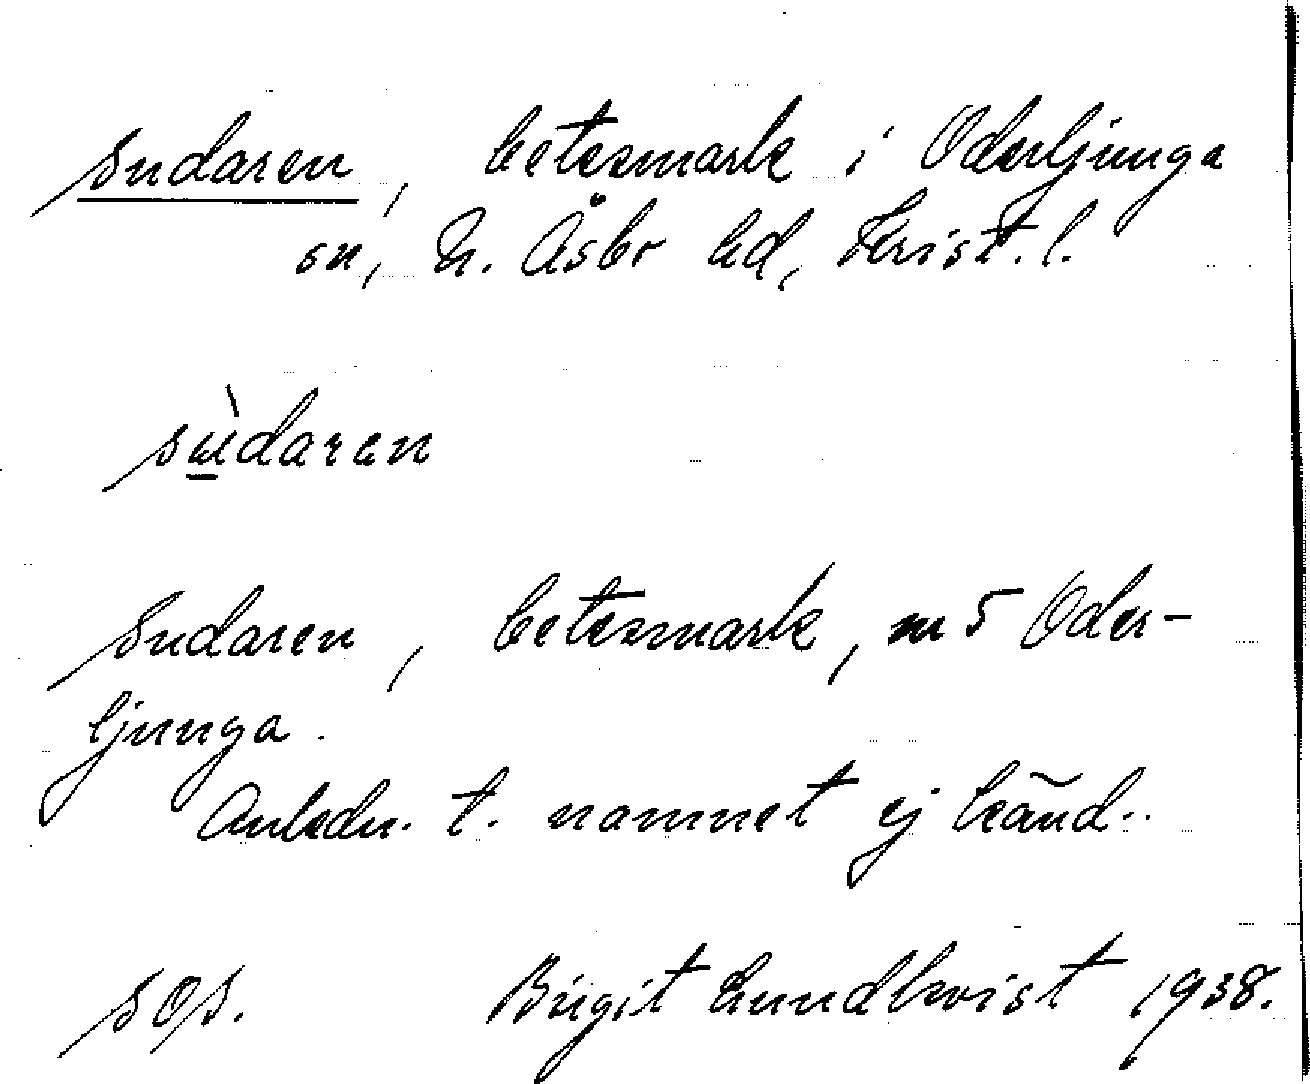 Sudaren, betesmark i Oderljunga
sn, N. Åsbo hd, Krist. l.
sùdaren
Sudaren, betesmark, m 5 Oder-
ljunga.
Anledn. t. namnet ej känd.
SOA. Birgit Lundkvist 1938.